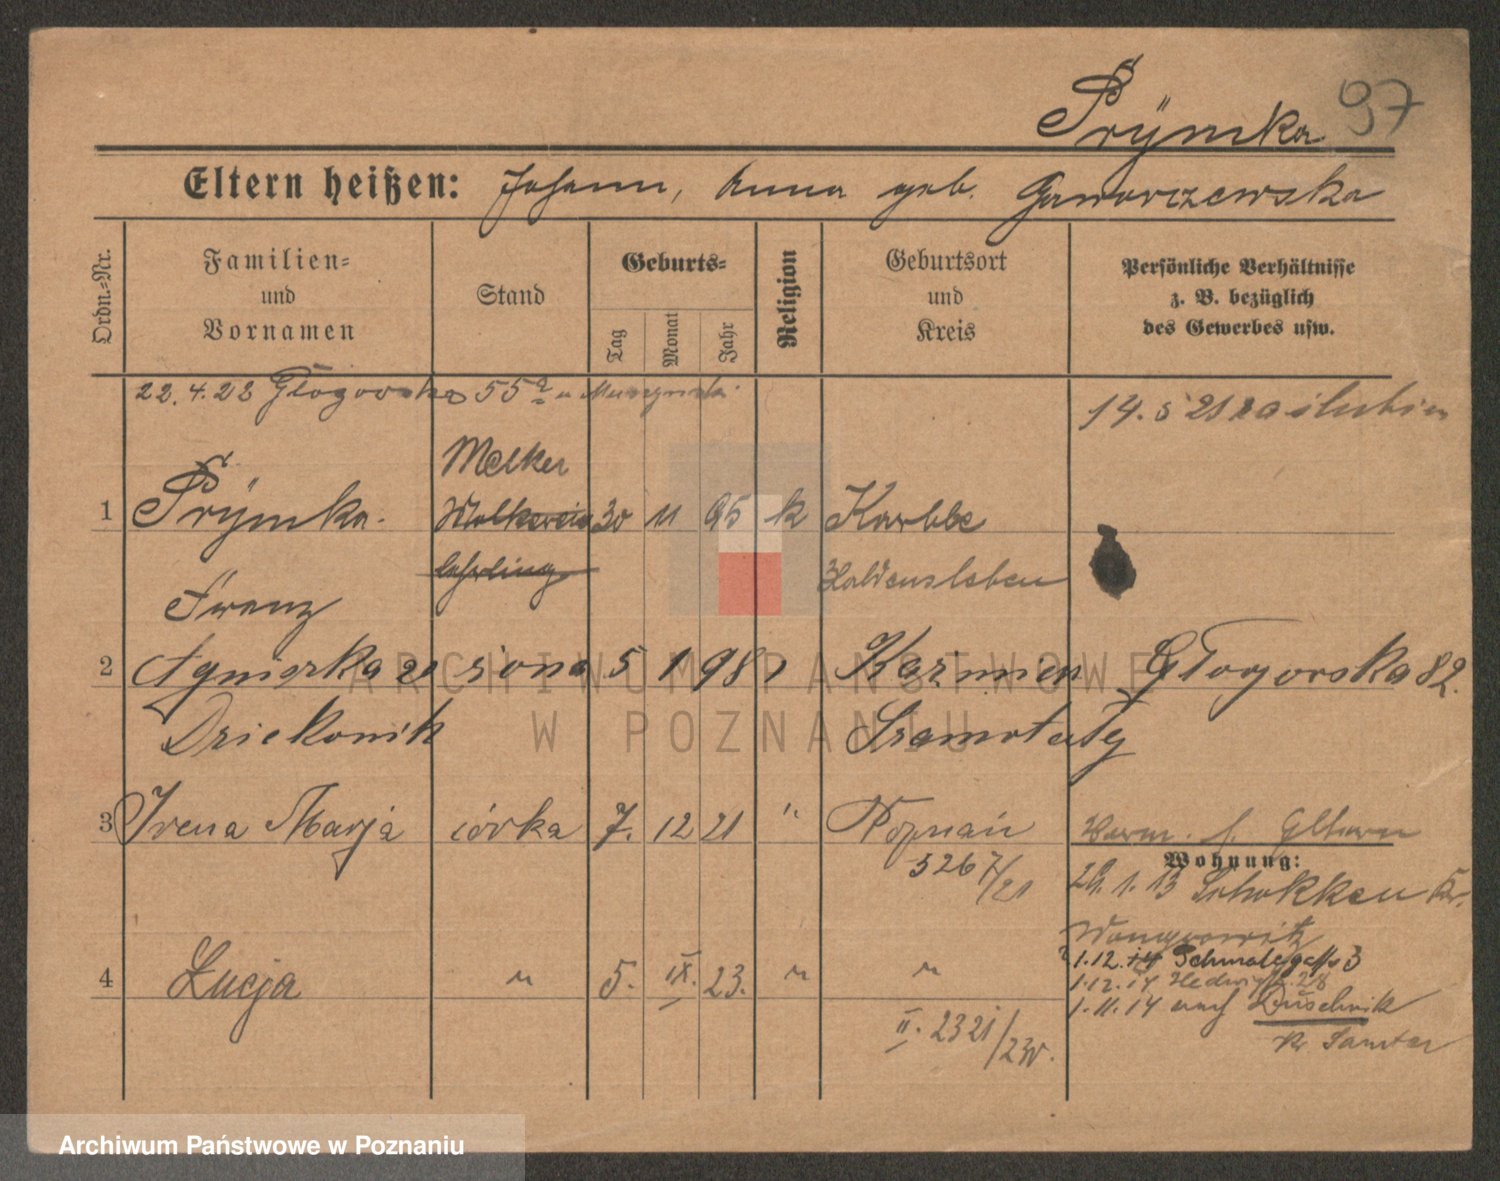 Prÿmka 97
Eltern heißen: Johann, Anna geb. Gaworczewska
Ordn.-Nr.
Familien- und Vornamen
Stand
Geburts-
Tag
Monat
Jahr
Religion
Geburtsort und Kreis
Persönliche Verhältnisse z. B. bezüglich des Gewerbes usw.
22.4.22 Głogowska 55a
14.5 21 zaślubien
Melker
1 Prÿmka. Molkerei 30 11 95 k Karbbe
lehrling Haldensleben
Franz
2 Agnieszka żona 5 1 98 Kazimierz Głogowska 82.
Dziekonik Szamotuły
3 Irena Marja córka 7. 12 21 " Poznań
Wohnung:
5267/21
29.1.13 Schokken Kr.
Wongrowitz
1.12.14 Schmalegasse 3
4 Lucja " 5. IX. 23. " "
1.12.14 Hedwigstr. 28
1.11.14 nach Duschnik
Kr Samter
II. 2321/23
ARCHIWUM PAŃSTWOWE
W POZNANIU
Archiwum Państwowe w Poznaniu